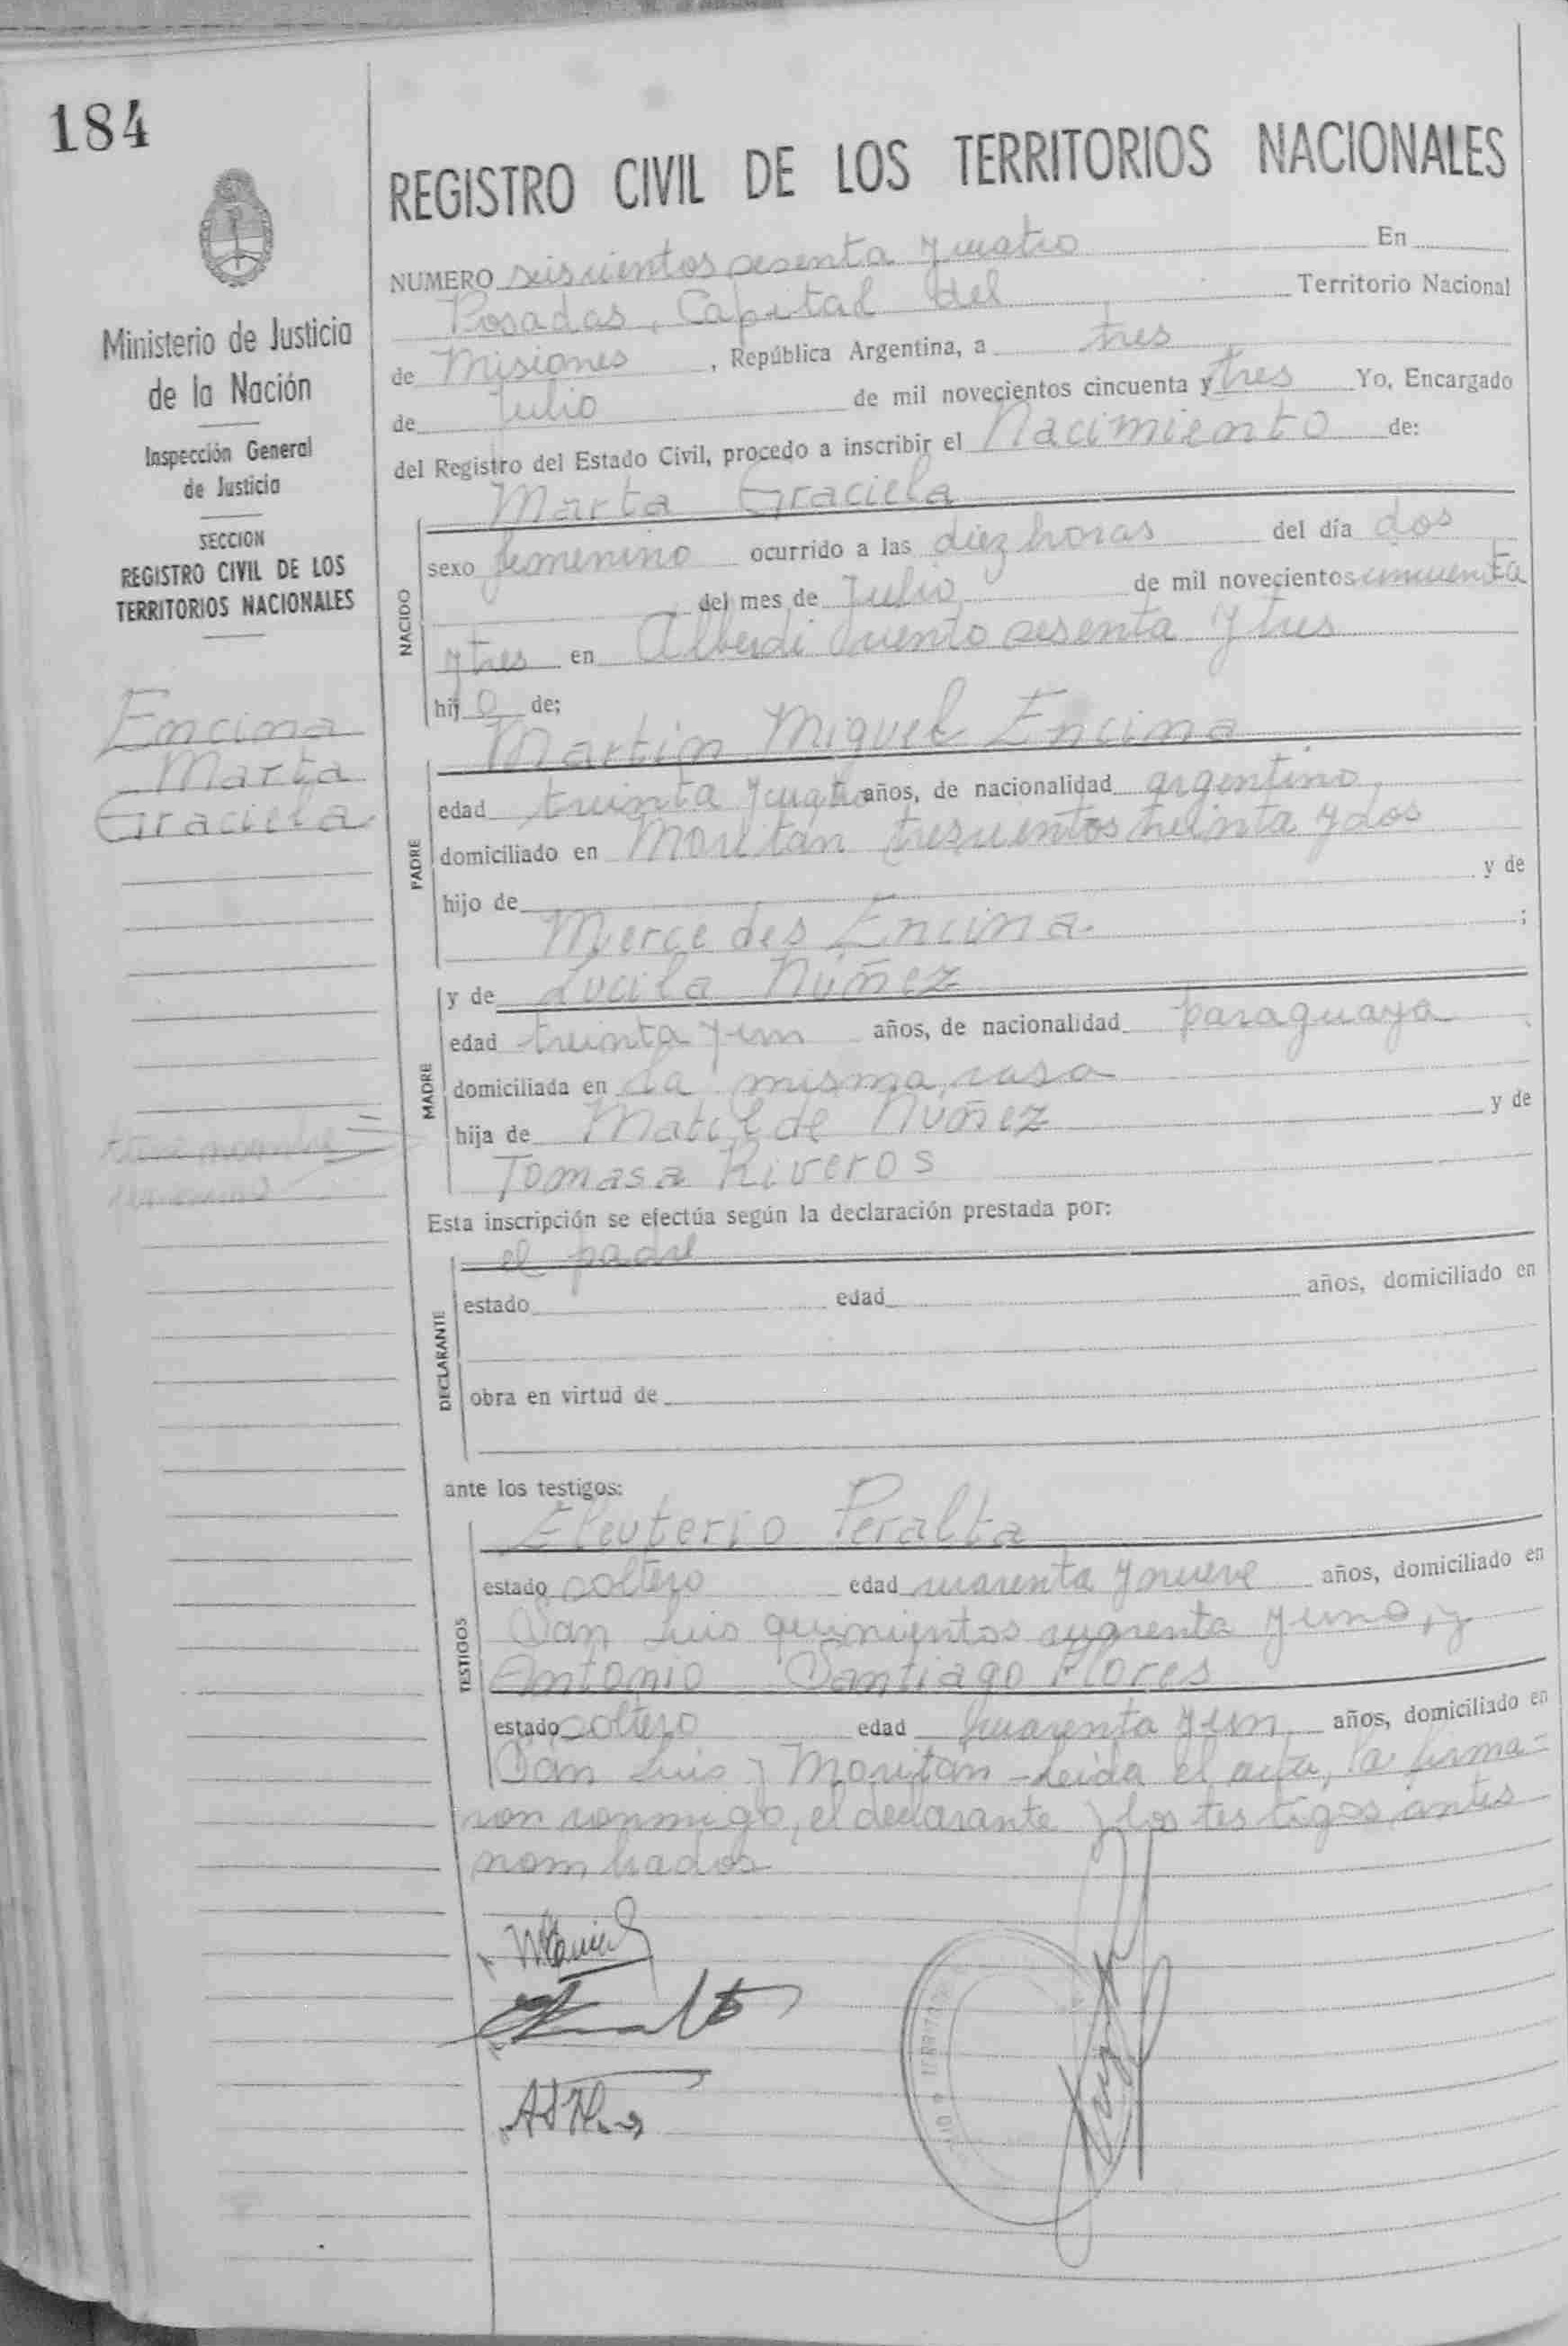 184
REGISTRO CIVIL DE LOS TERRITORIOS NACIONALES
NUMERO seiscientos sesenta y cuatro En
Posadas, Capital del Territorio Nacional
de Misiones, República Argentina, a tres
de Julio de mil novecientos cincuenta y tres Yo, Encargado
del Registro del Estado Civil, procedo a inscribir el Nacimiento de:
Marta Graciela
sexo femenino ocurrido a las diez horas del día dos
del mes de Julio de mil novecientos cincuenta
y tres en Alberdi ciento sesenta y tres
hijo de;
NACIDO
Martin Miguel Encina
edad treinta y cuatro años, de nacionalidad argentino,
domiciliado en Moritan trescientos treinta y dos
hijo de y de
Mercedes Encina. ;
PADRE
y de Lucila Núñez
edad treinta y un años, de nacionalidad paraguaya
domiciliada en la misma casa
hija de Matilde Núñez y de
Tomasa Riveros
MADRE
Esta inscripción se efectúa según la declaración prestada por:
el padre
estado edad años, domiciliado en
obra en virtud de
DECLARANTE
ante los testigos:
Eleuterio Peralta
estado soltero edad cuarenta y nueve años, domiciliado en
San Luis quinientos cuarenta y uno, y
Antonio Santiago Flores
estado soltero edad cuarenta y un años, domiciliado en
San Luis y Moritan - Leída el acta, la firma-
ron conmigo, el declarante y los testigos antes
nombrados
TESTIGOS
Ministerio de Justicia
de la Nación
Inspección General
de Justicia
SECCION
REGISTRO CIVIL DE LOS
TERRITORIOS NACIONALES
Encina
Marta
Graciela